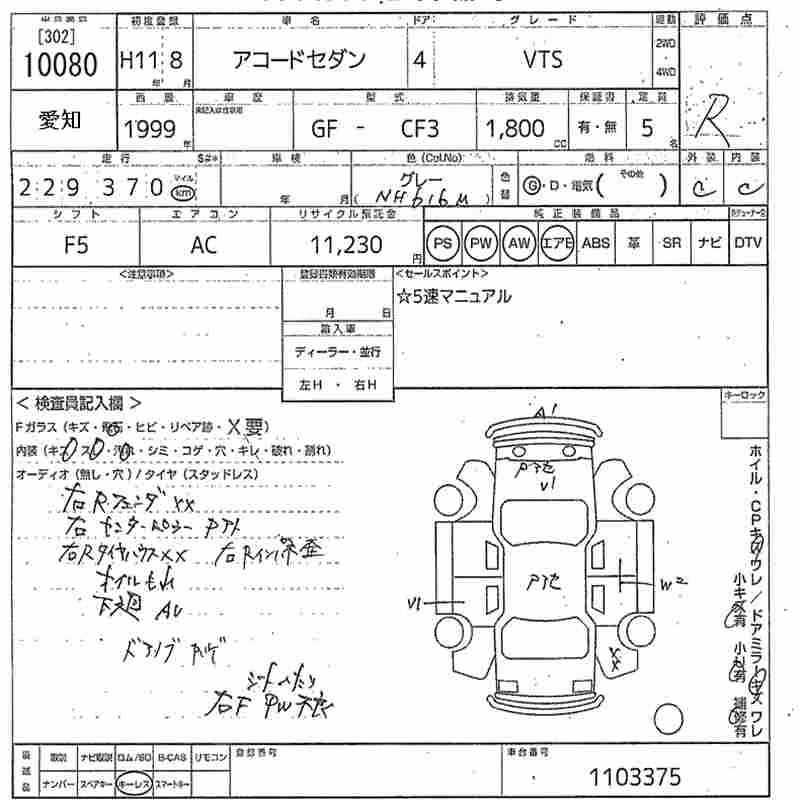 [302]
10080
初度登録
H11 8
年 月
車名
アコードセダン
ドア
4
グレード
VTS
駆動
2WD
4WD
評価点
R
愛知
西暦
1999
年
車歴
型式
GF - CF3
排気量
1,800
CC
保証書
有・無
定員
5
名
走行
$#*
229370
マイル
km
車検
年 月
色(Col.No)
グレー
(NH616M)
色替
燃料
G・D・電気( その他 )
外装
C
内装
C
シフト
F5
エアコン
AC
リサイクル預託金
11,230
円
純正装備品
PS PW AW エアB ABS 革 SR ナビ DTV
<注意事項>
登録書類有効期限
月 日
輸入車
ディーラー・並行
左H ・ 右H
<セールスポイント>
☆5速マニュアル
キーロック
<検査員記入欄>
Fガラス(キズ・飛石・ヒビ・リペア跡・X要)
内装(キズ・スレ・汚れ・シミ・コゲ・穴・キレ・破れ・割れ)
オーディオ(無し・穴)/タイヤ(スタッドレス)
右Rフェンダ XX
右センターピラー
右RタイヤハウスXX 右Rインパネ
オイルもれ
下廻 AU
右F PW不良
A1
V1
W2
V1
XX
ホイル・CPキズワレ/ドアミラーキズワレ
小キズ有 小凹有 補修有
後送品
取説 ナビ取説 ロム/SD B-CAS リモコン
ナンバー スペアキー キーレス スマートキー
登録番号
車台番号
1103375